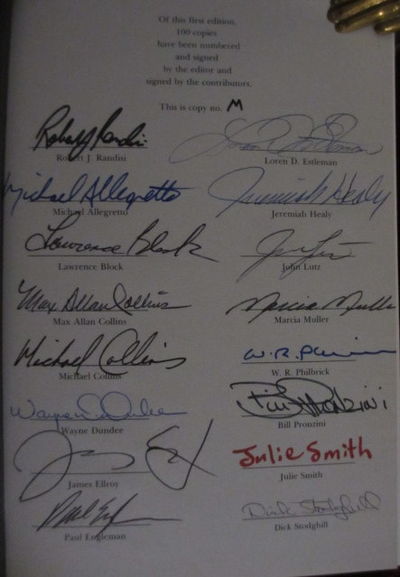 Of this first edition,
100 copies
have been numbered
and signed
by the editor and
signed by the contributors.
This is copy no. M
Robert J. Randisi
Robert J. Randisi
Loren D. Estleman
Loren D. Estleman
Michael Allegretto
Michael Allegretto
Jeremiah Healy
Jeremiah Healy
Lawrence Block
Lawrence Block
John Lutz
John Lutz
Max Allan Collins
Max Allan Collins
Marcia Muller
Marcia Muller
Michael Collins
Michael Collins
W. R. Philbrick
W. R. Philbrick
Wayne D. Dundee
Wayne Dundee
Bill Pronzini
Bill Pronzini
James Ellroy
Julie Smith
Julie Smith
Paul Engleman
Paul Engleman
Dick Stodghill
Dick Stodghill